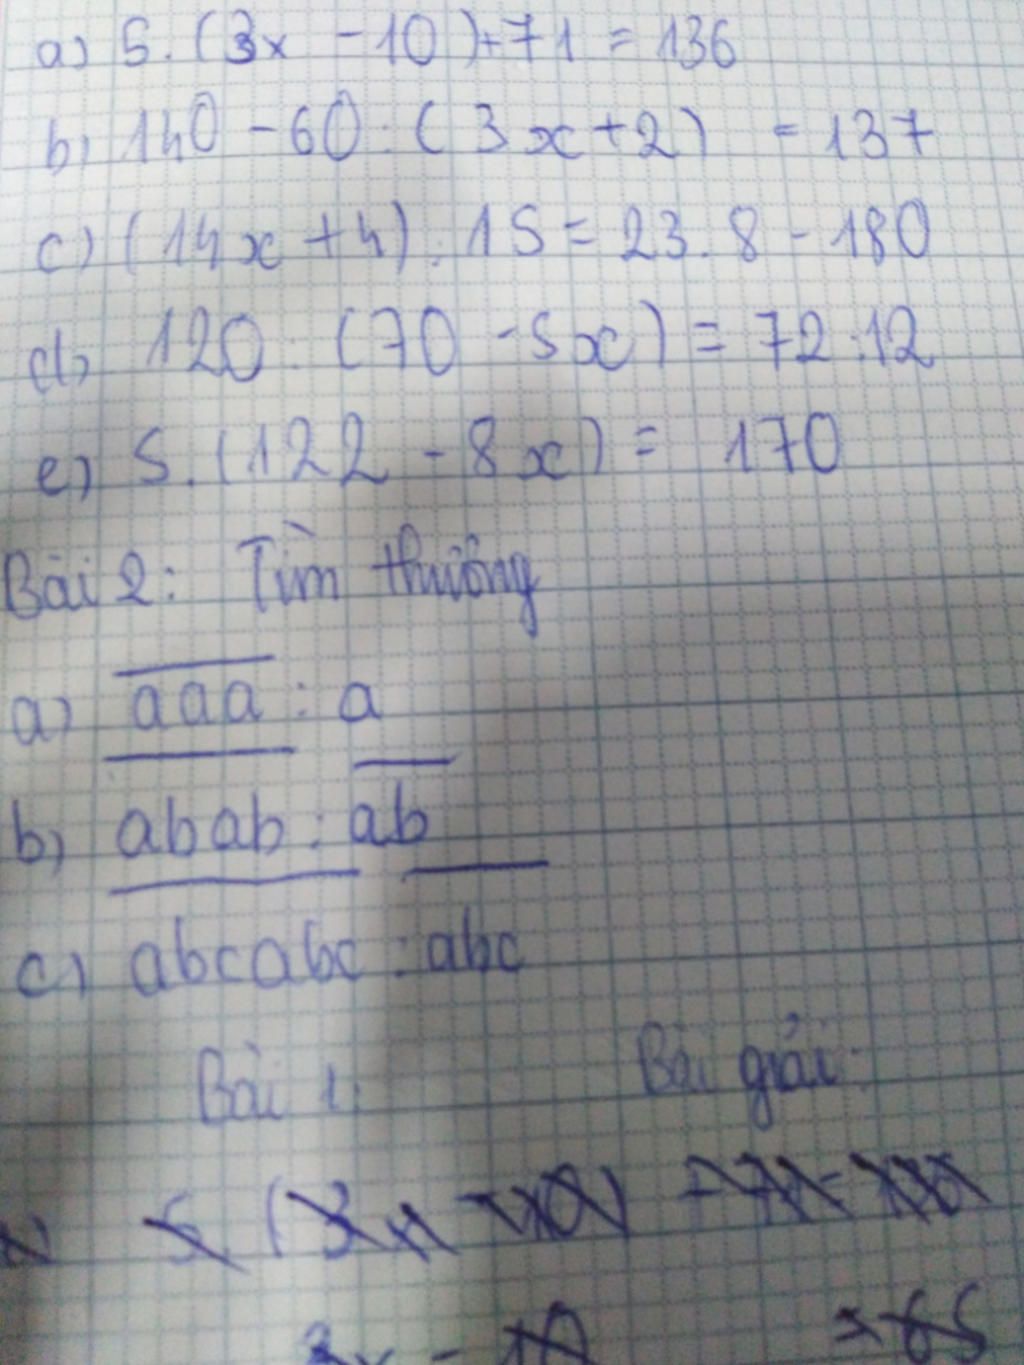 a) 5. (3x - 10) + 71 = 136
b) 140 - 60 : (3x + 2) = 137
c) (14x + 4) : 15 = 23. 8 - 180
d) 120 : (70 - 5x) = 72 : 12
e) 5. (122 - 8x) = 170
Bài 2: Tìm thương
a) aaa : a
b) abab : ab
c) abcabc : abc
Bài 1: Bài giải:
5 (3x - 10)
3x - 10 = 65